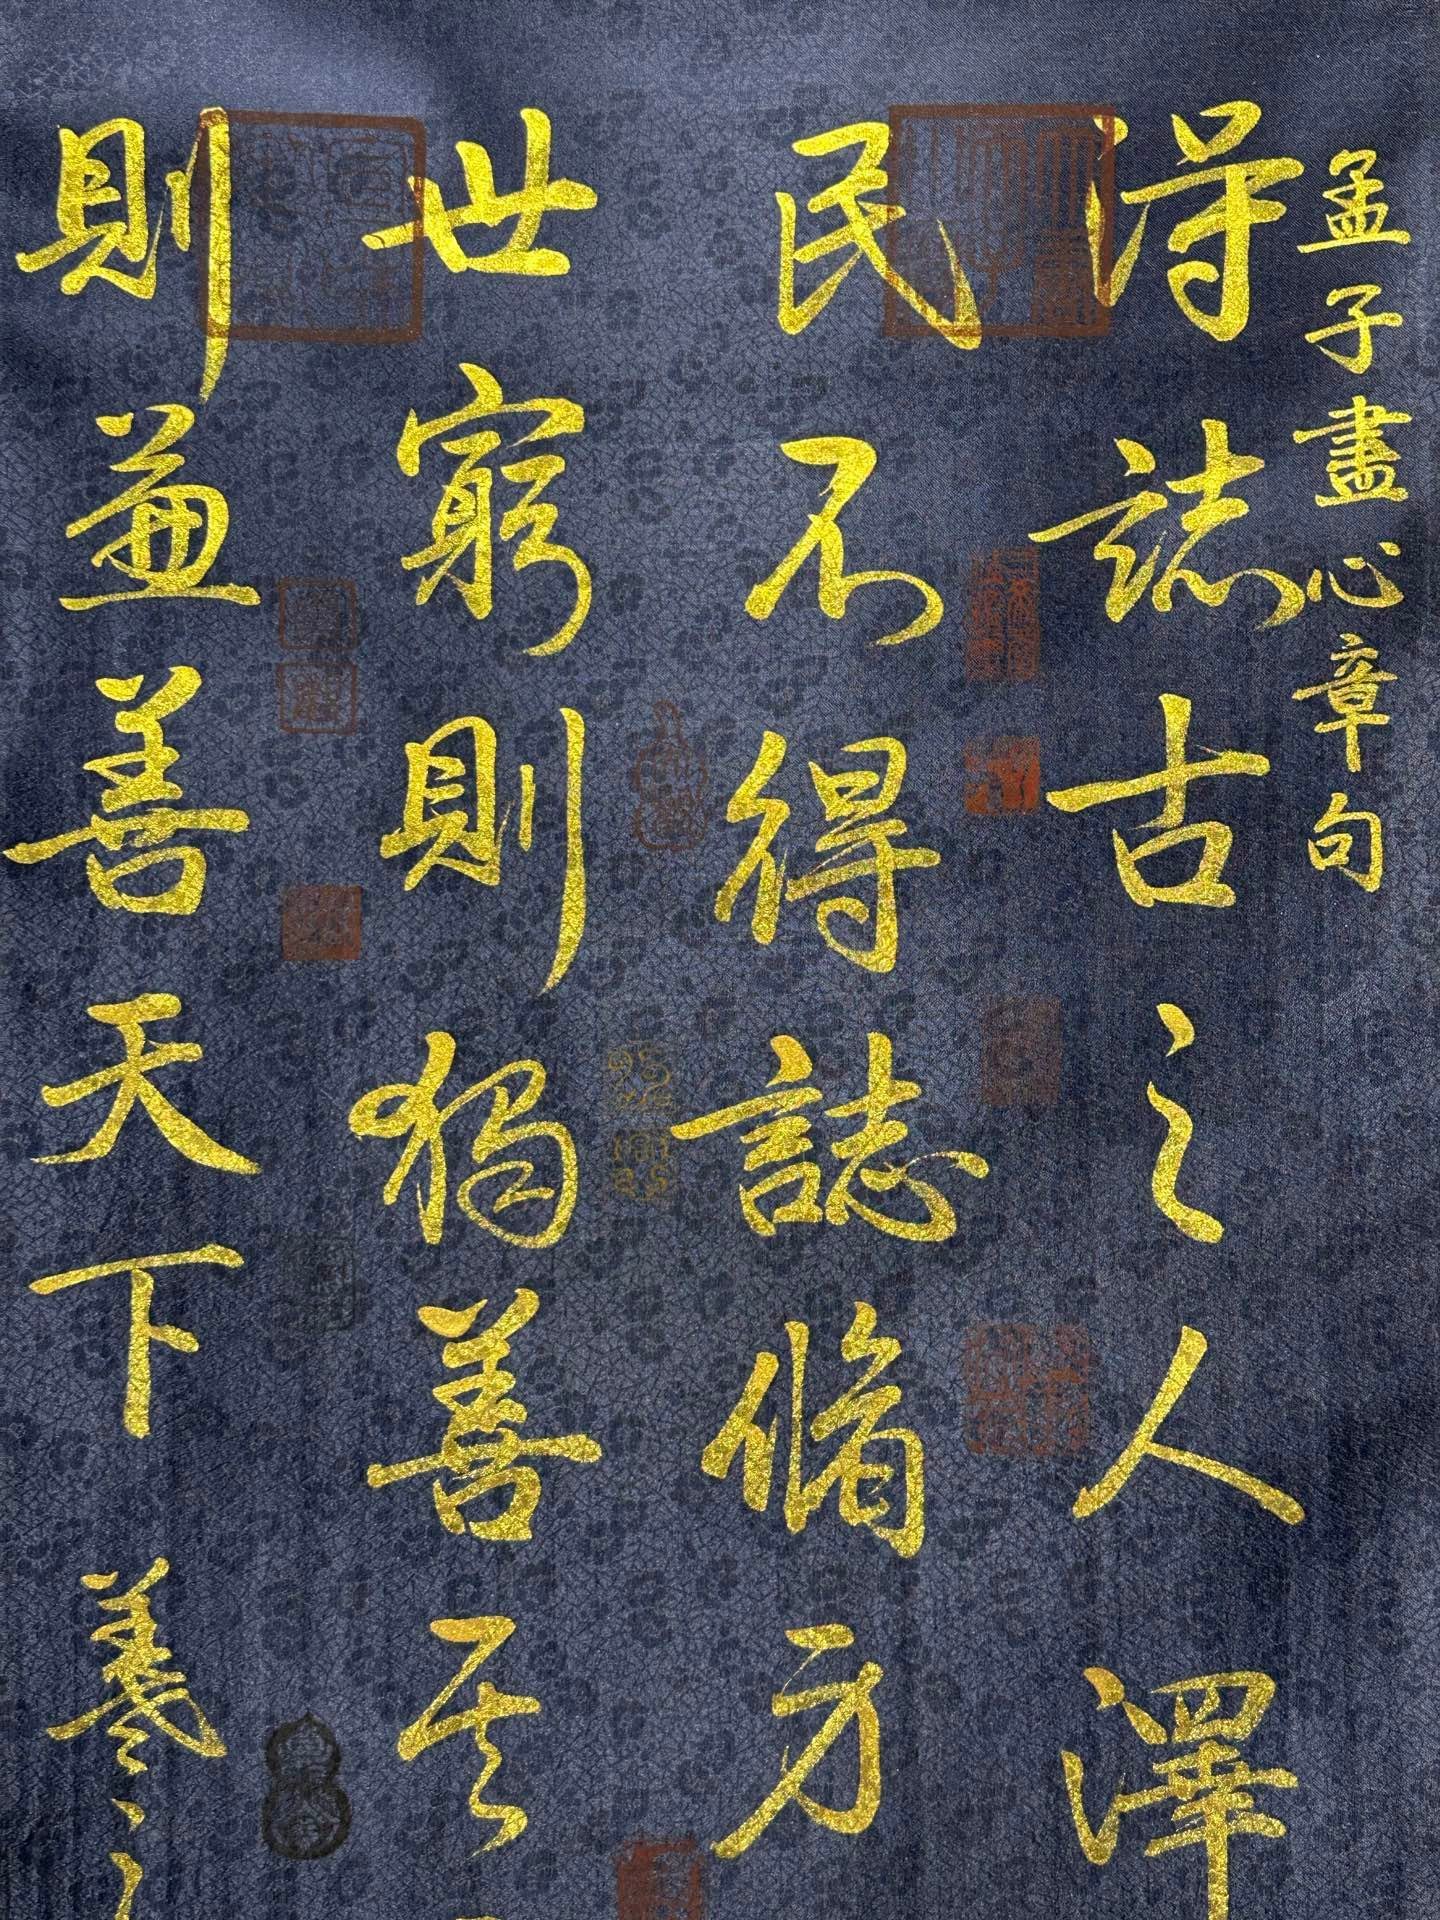 孟子盡心章句
得誌古之人澤
民不得誌脩方
世窮則獨善其
則兼善天下義之